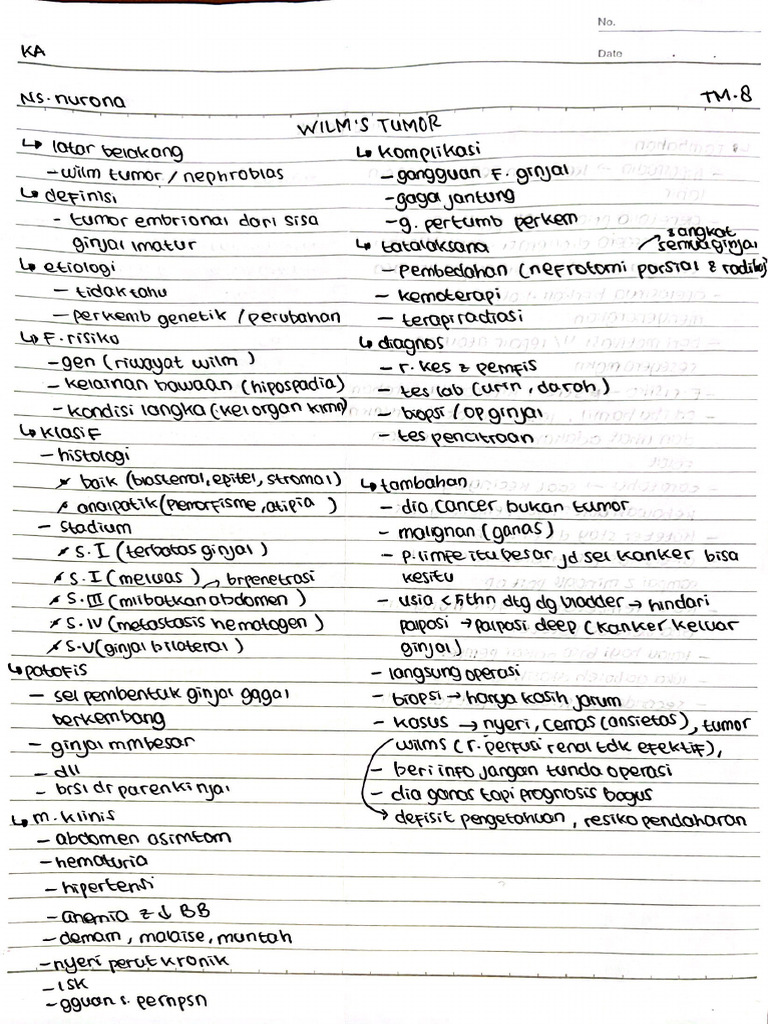 No.
Date
KA
Ns. nurona
TM.8
WILM'S TUMOR
↳ latar belakang
- wilm tumor / nephroblas
↳ definisi
- tumor embrional dari sisa
ginjal imatur
↳ etiologi
- tidak tahu
- perkemb genetik / perubahan
↳ F. risiko
- gen (riwayat wilm)
- kelainan bawaan (hipospadia)
- kondisi langka (kel organ klmn)
↳ klasif
- histologi
* baik (blastemal, epitel, stromal)
* analpatik (plemorfisme, atipia)
- stadium
* S. I (terbatas ginjal)
* S. I (meluas) → brpenetrasi
* S. III (mlibatkan abdomen)
* S. IV (metastasis hematogen)
* S. V (ginjal bilateral)
↳ patofis
- sel pembentuk ginjal gagal
berkembang
- ginjal mmbesar
- dll
- brsl dr parenkinjal
↳ m. klinis
- abdomen asimtom
- hematuria
- hipertensi
- anemia & ↓ BB
- demam, malaise, muntah
- nyeri perut kronik
- ISK
- gguan s. pernpsn
↳ komplikasi
- gangguan F. ginjal
- gagal jantung
- g. pertumb perkem
↳ tatalaksana
angkat
semua ginjal
- Pembedahan (nefrotomi parsial & radikal)
- kemoterapi
- terapi radiasi
↳ diagnos
- r. kes & pemfis
- tes lab (urin, darah)
- biopsi / op ginjal
- tes pencitraan
↳ tambahan
- dia cancer bukan tumor
- malignan (ganas)
- p. limfe itu besar jd sel kanker bisa
kesitu
- usia < 5 thn dtg dg bladder → hindari
palpasi → palpasi deep (kanker keluar
ginjal)
- langsung operasi
- biopsi → hanya kasih jarum
- kasus → nyeri, cemas (ansietas), tumor
wilms (r. perfusi renal tdk efektif),
- beri info jangan tunda operasi
- dia ganas tapi prognosis bagus
→ defisit pengetahuan, resiko pendaharan